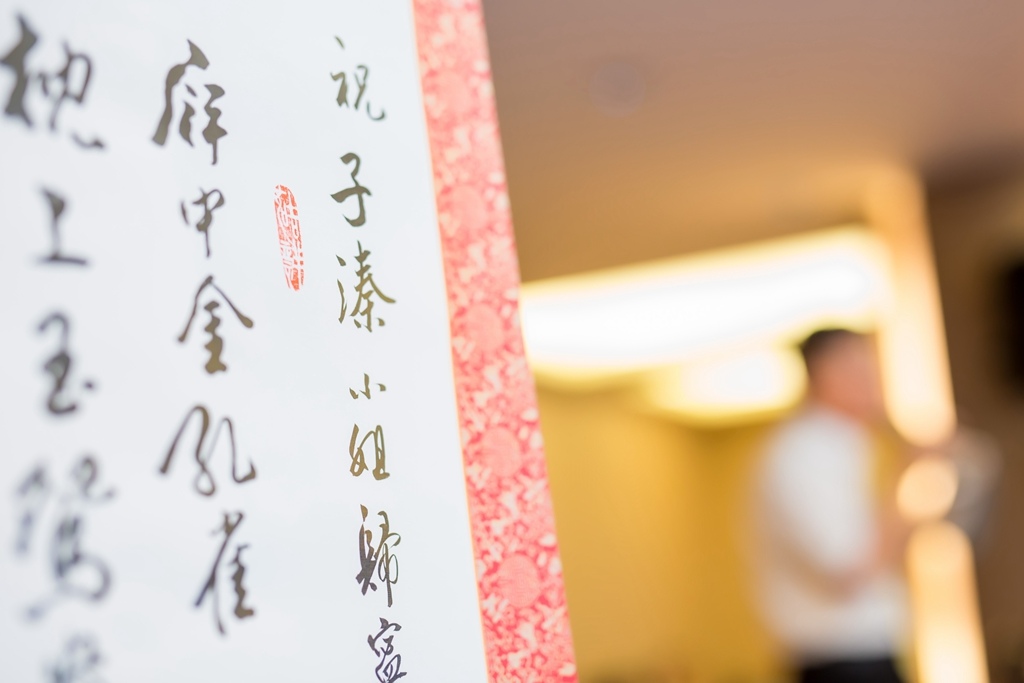 祝子溱小姐歸寧
屏中金孔雀
枕上玉鴛